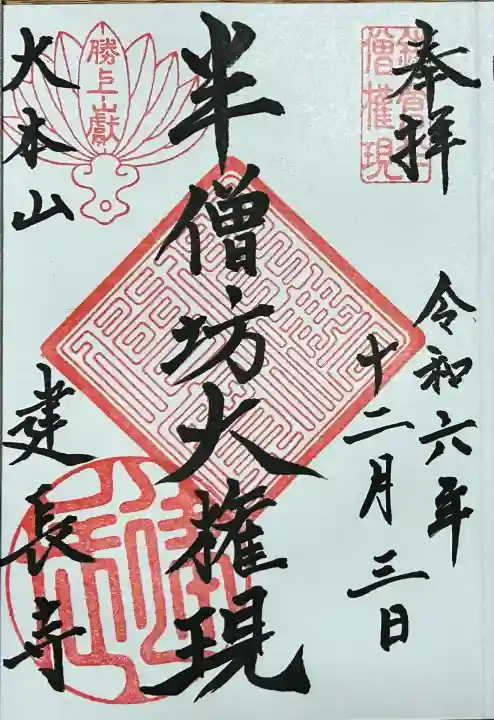 奉拝
令和六年
十二月三日
半僧坊大権現
大本山
建長寺
勝上山獻